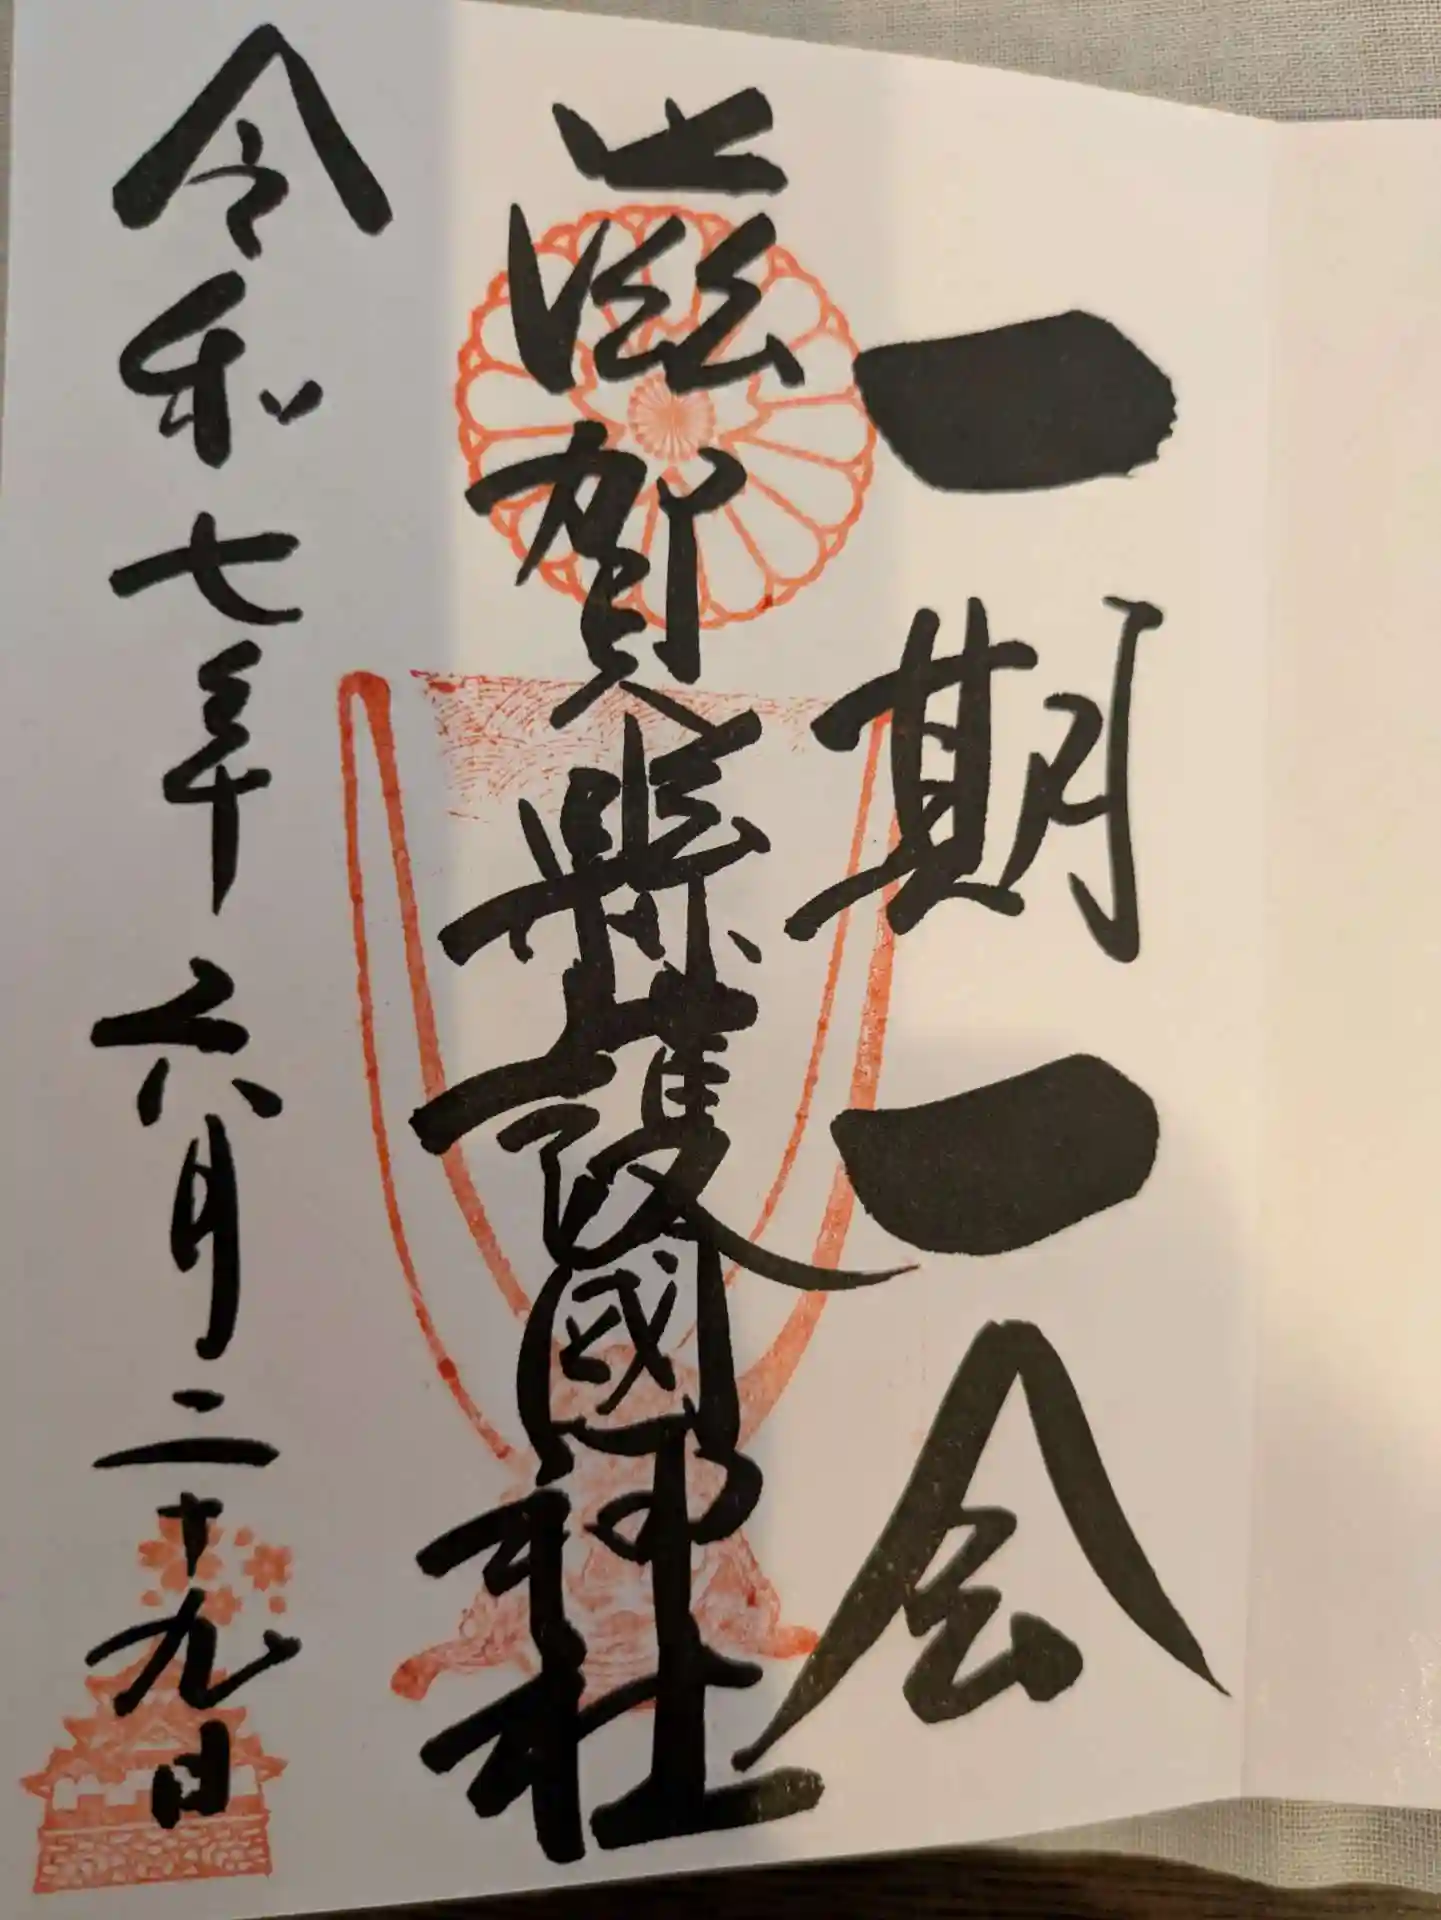 一期一会
滋賀縣護國神社
令和七年六月二十九日